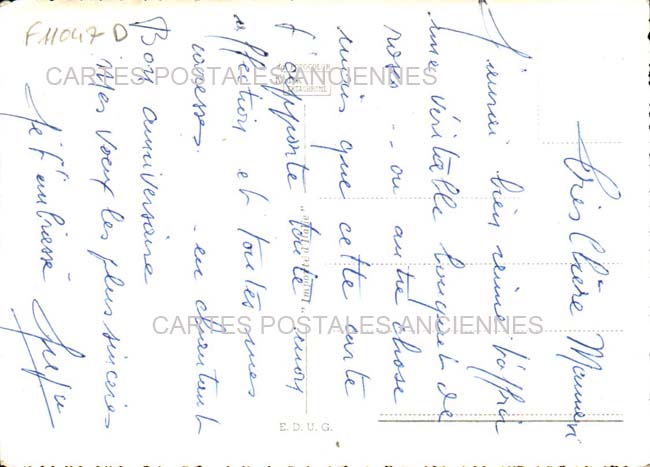 Très Chère Maman
J'aurai bien aimé t'offrir
une véritable bouquet de
roses -- ou autre chose
mais que cette carte
t'apporte toute mon
affection et toutes mes
- en chantant
Bon anniversaire
Mes voeux les plus sincères
Je t'embrasse -
F11047D
CARTES POSTALES ANCIENNES
CARTES POSTALES ANCIENNES
E. D. U. G.